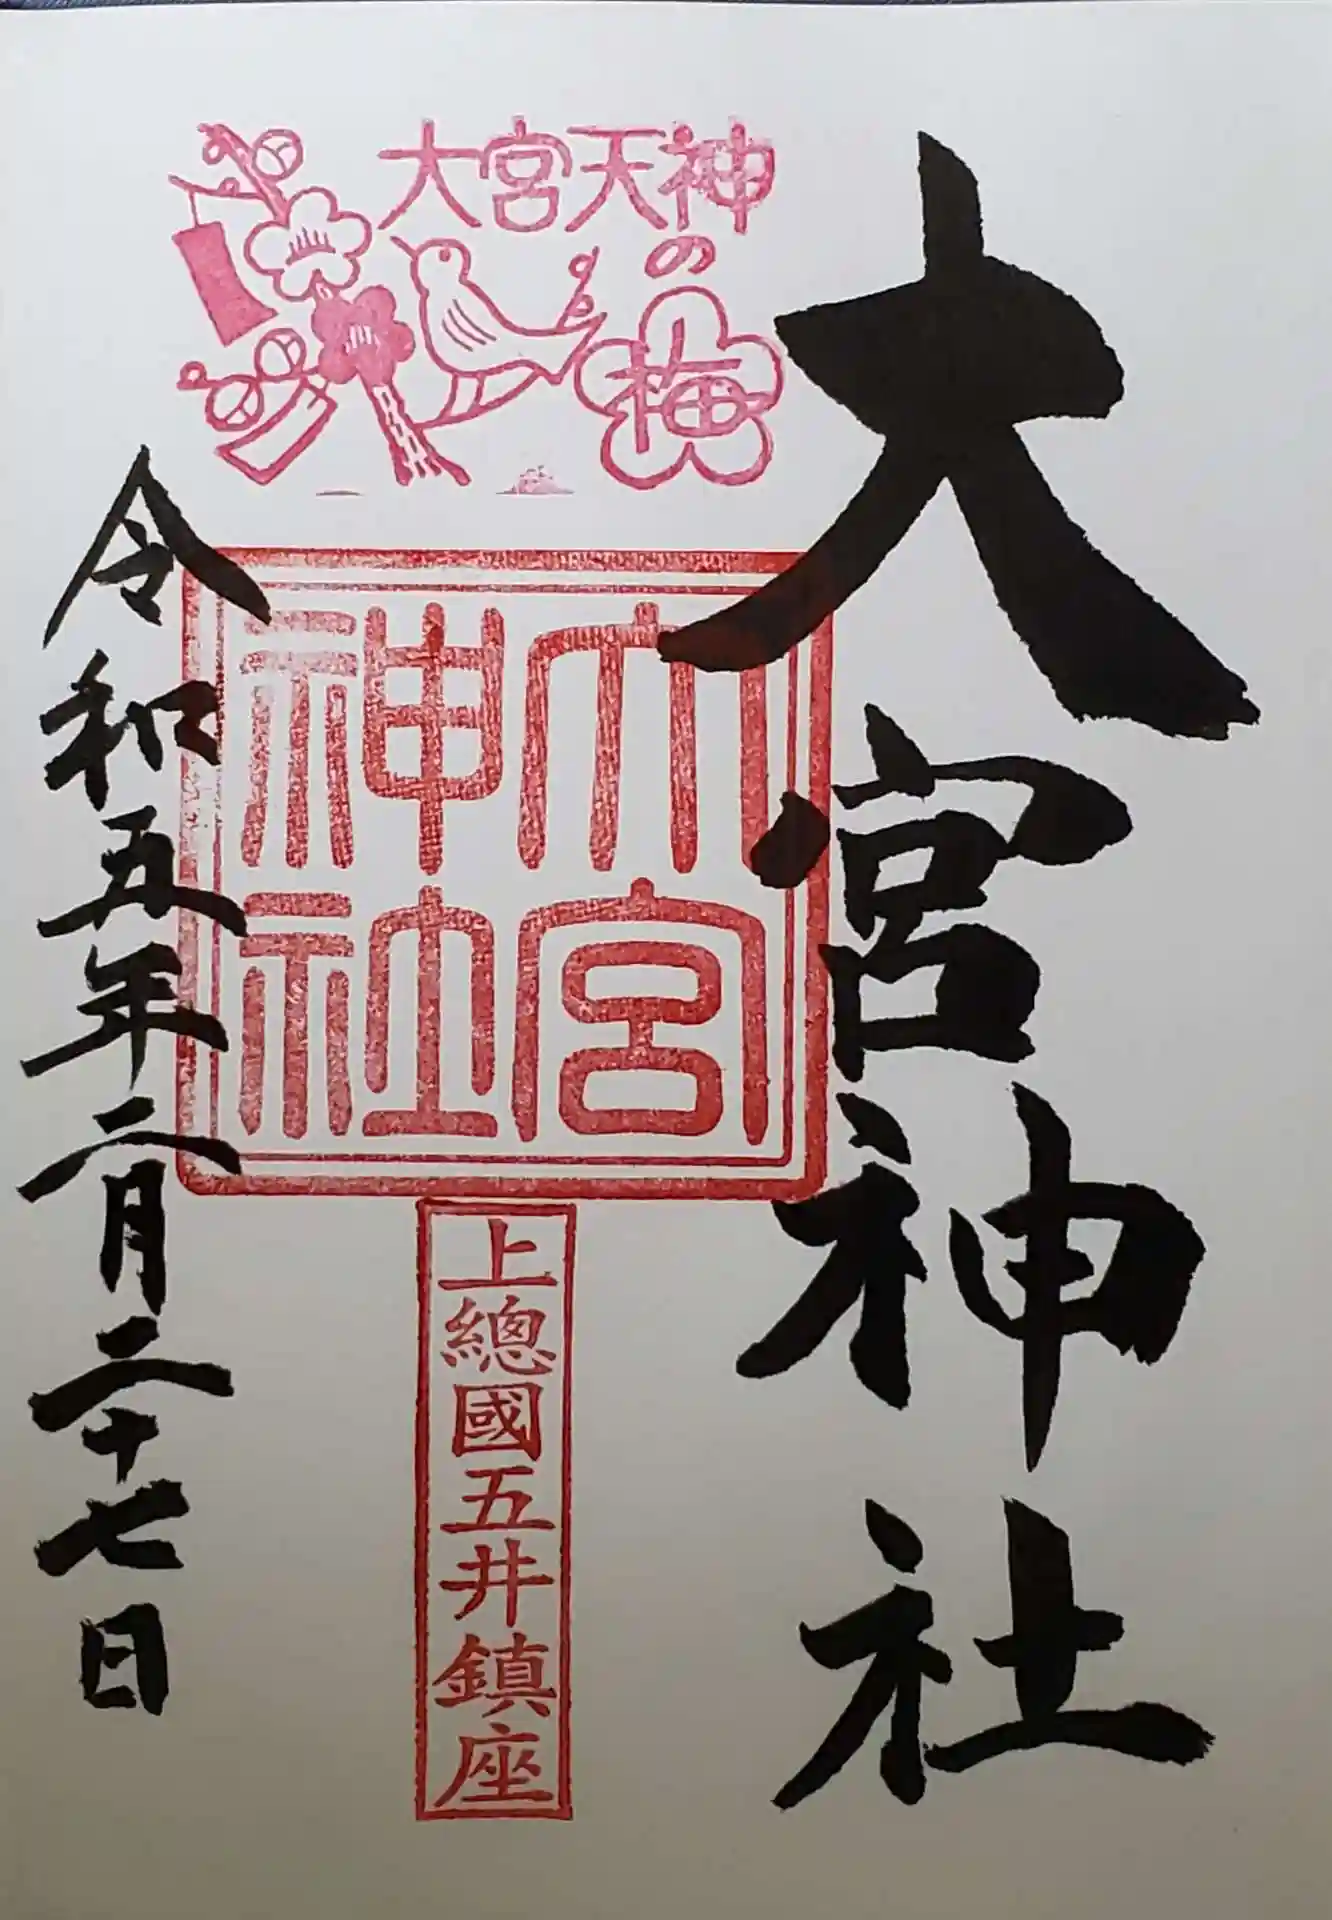 大宮神社
大宮天神
の
梅
大宮
神社
上總國五井鎮座
令和五年二月二十七日